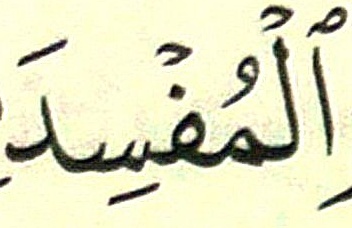 ٱلْمُفْسِدَ